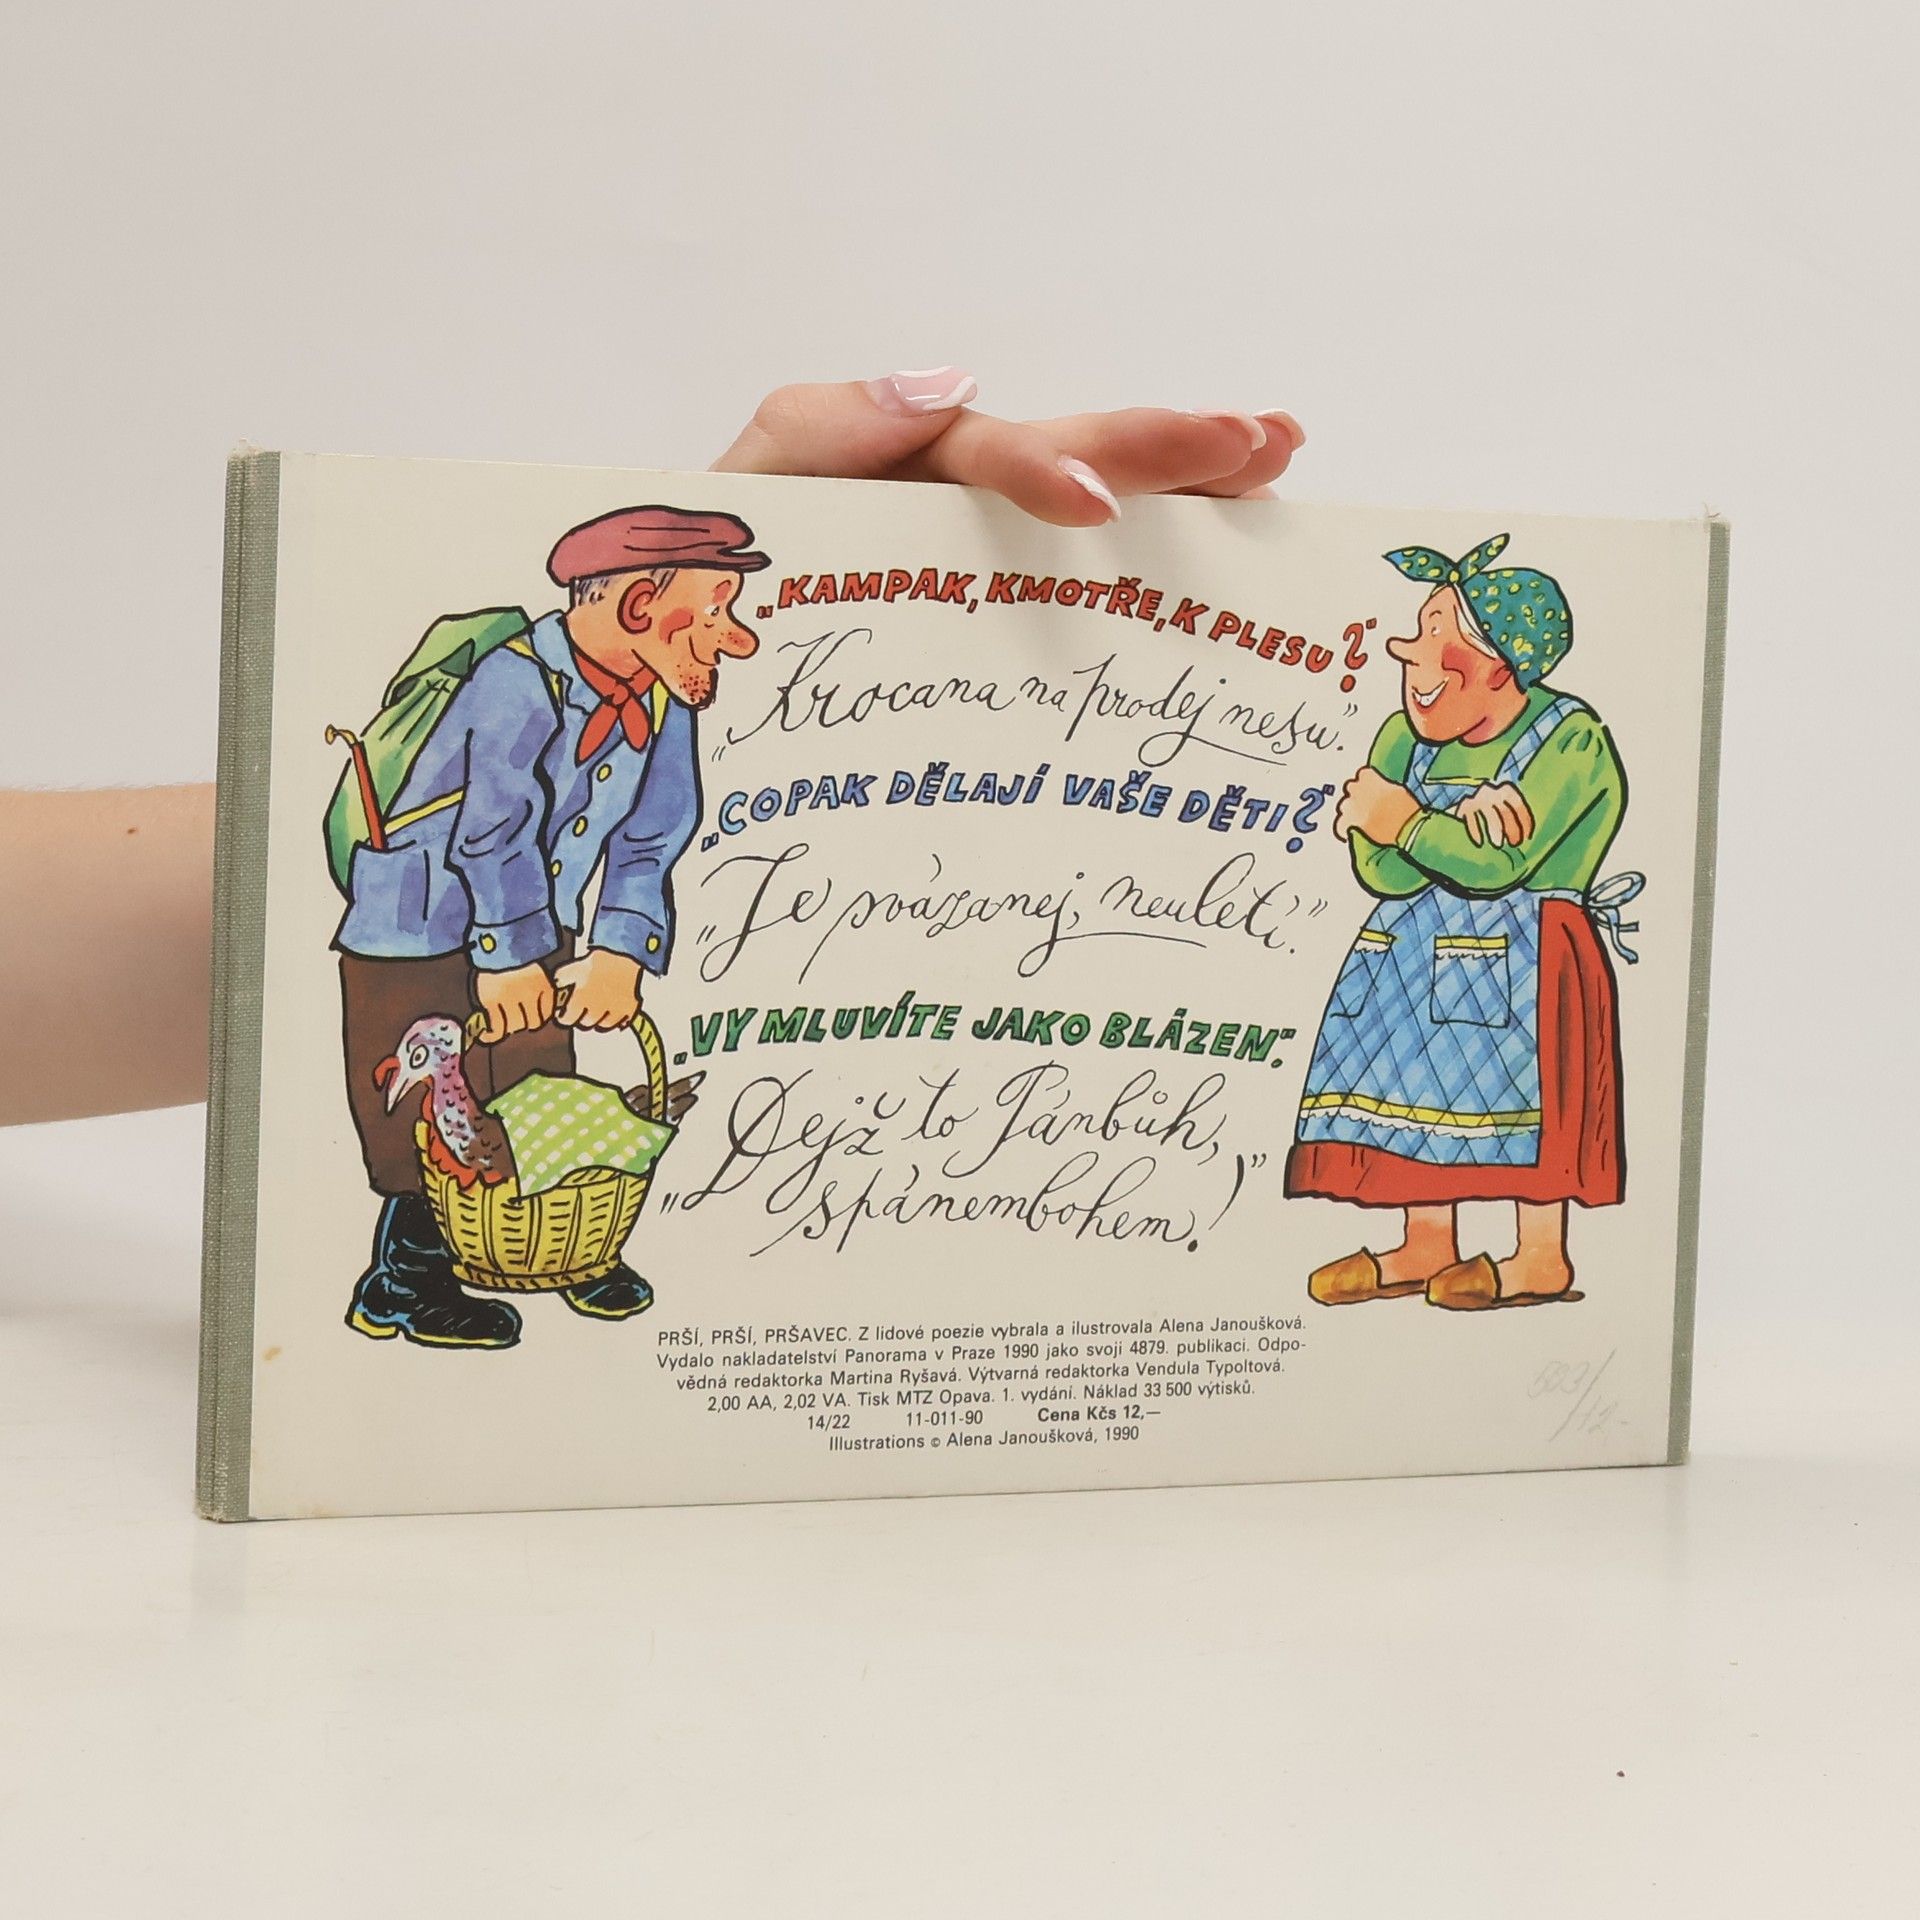 „KAMPAK, KMOTŘE, K PLESU?"
„Krocana na prodej nesu."
„COPAK DĚLAJÍ VAŠE DĚTI?"
„Je svázanej, neuletí."
„VY MLUVÍTE JAKO BLÁZEN."
„Dejž to Pánbůh,
spánembohem!"
PRŠÍ, PRŠÍ, PRŠAVEC. Z lidové poezie vybrala a ilustrovala Alena Janoušková.
Vydalo nakladatelství Panorama v Praze 1990 jako svoji 4879. publikaci. Odpo-
vědná redaktorka Martina Ryšavá. Výtvarná redaktorka Vendula Typoltová.
2,00 AA, 2,02 VA. Tisk MTZ Opava. 1. vydání. Náklad 33 500 výtisků.
14/22 11-011-90 Cena Kčs 12,—
Illustrations © Alena Janoušková, 1990